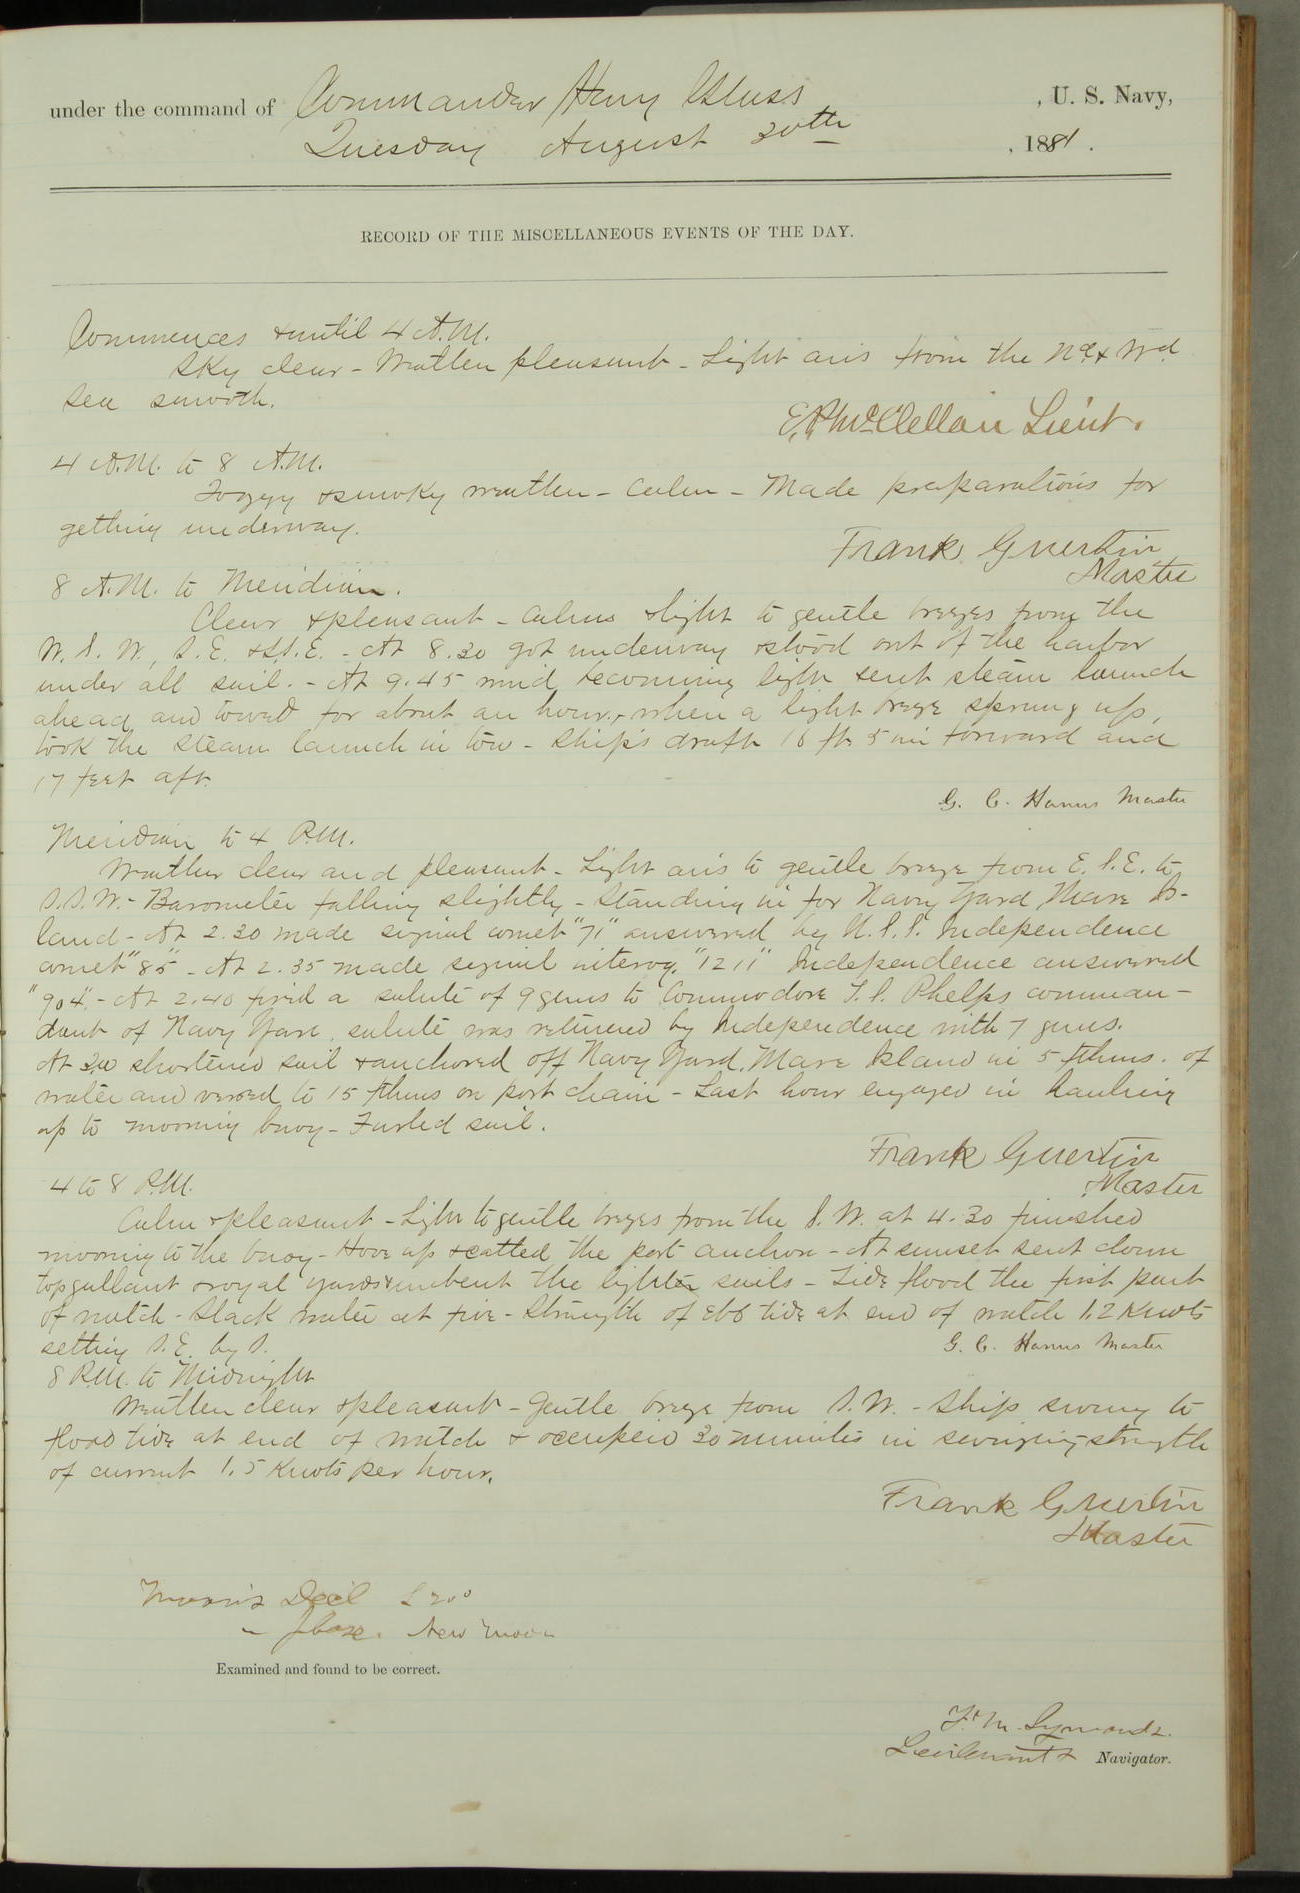 under the command of Commander Henry Glass , U. S. Navy,
Tuesday August 30th , 1881.
RECORD OF THE MISCELLANEOUS EVENTS OF THE DAY.
Commences & until 4 A.M.
Sky clear - Weather pleasant - Light airs from the Nd. & Wd.
Sea smooth.
E. P. McClellan Lieut.
4 A.M. to 8 A.M.
Foggy & smoky weather - Calm - Made preparations for
getting underway.
Frank Guertin
Master
8 A.M. to Meridian.
Clear & pleasant - Calms & light to gentle breezes from the
W.S.W., S.E. & S.S.E. - At 8.30 got underway & stood out of the harbor
under all sail. - At 9.45 wind becoming light sent steam launch
ahead and towed for about an hour, - when a light breeze sprung up,
took the steam launch in tow - Ship's draft 16 ft. 5 in forward and
17 feet aft.
G. C. Hanus Master
Meridian to 4 P.M.
Weather clear and pleasant - Light airs to gentle breeze from E.S.E. to
S.S.W. - Barometer falling slightly - Standing in for Navy Yard Mare Is-
land - At 2.30 made signal cornet "71" answered by U.S.S. Independence
cornet "85" - At 2.35 made signal interog. "1211" Independence answered
"904" - At 2.40 fired a salute of 9 guns to Commodore T. S. Phelps comman-
dant of Navy Yard, salute was returned by Independence with 7 guns.
At shortened sail & anchored off Navy Yard, Mare Island in 5 fthms. of
water and veered to 15 fthms on port chain - Last hour engaged in hauling
up to mooring buoy - Furled sail.
Frank Guertin
Master
4 to 8 P.M.
Calm & pleasant - Light to gentle breezes from the S.W. at 4.30 finished
mooring to the buoy - Hove up & catted the port anchor - At sunset sent down
topgallant & royal yards & unbent the lighter sails - Tide flood the first part
of watch - Slack water at five - Strength of ebb tide at end of watch 1.2 Knots
setting S.E. by S.
G. C. Hanus Master
8 P.M. to Midnight
Weather clear & pleasant - Gentle breeze from S.W. - Ship swung to
flood tide at end of watch & occupied 30 minutes in swinging, strength
of current 1.5 Knots per hour.
Frank Guertin
Master
Moon's Decl
" Phase. New Moon
Examined and found to be correct.
F. M. Symonds.
Lieutenant & Navigator.